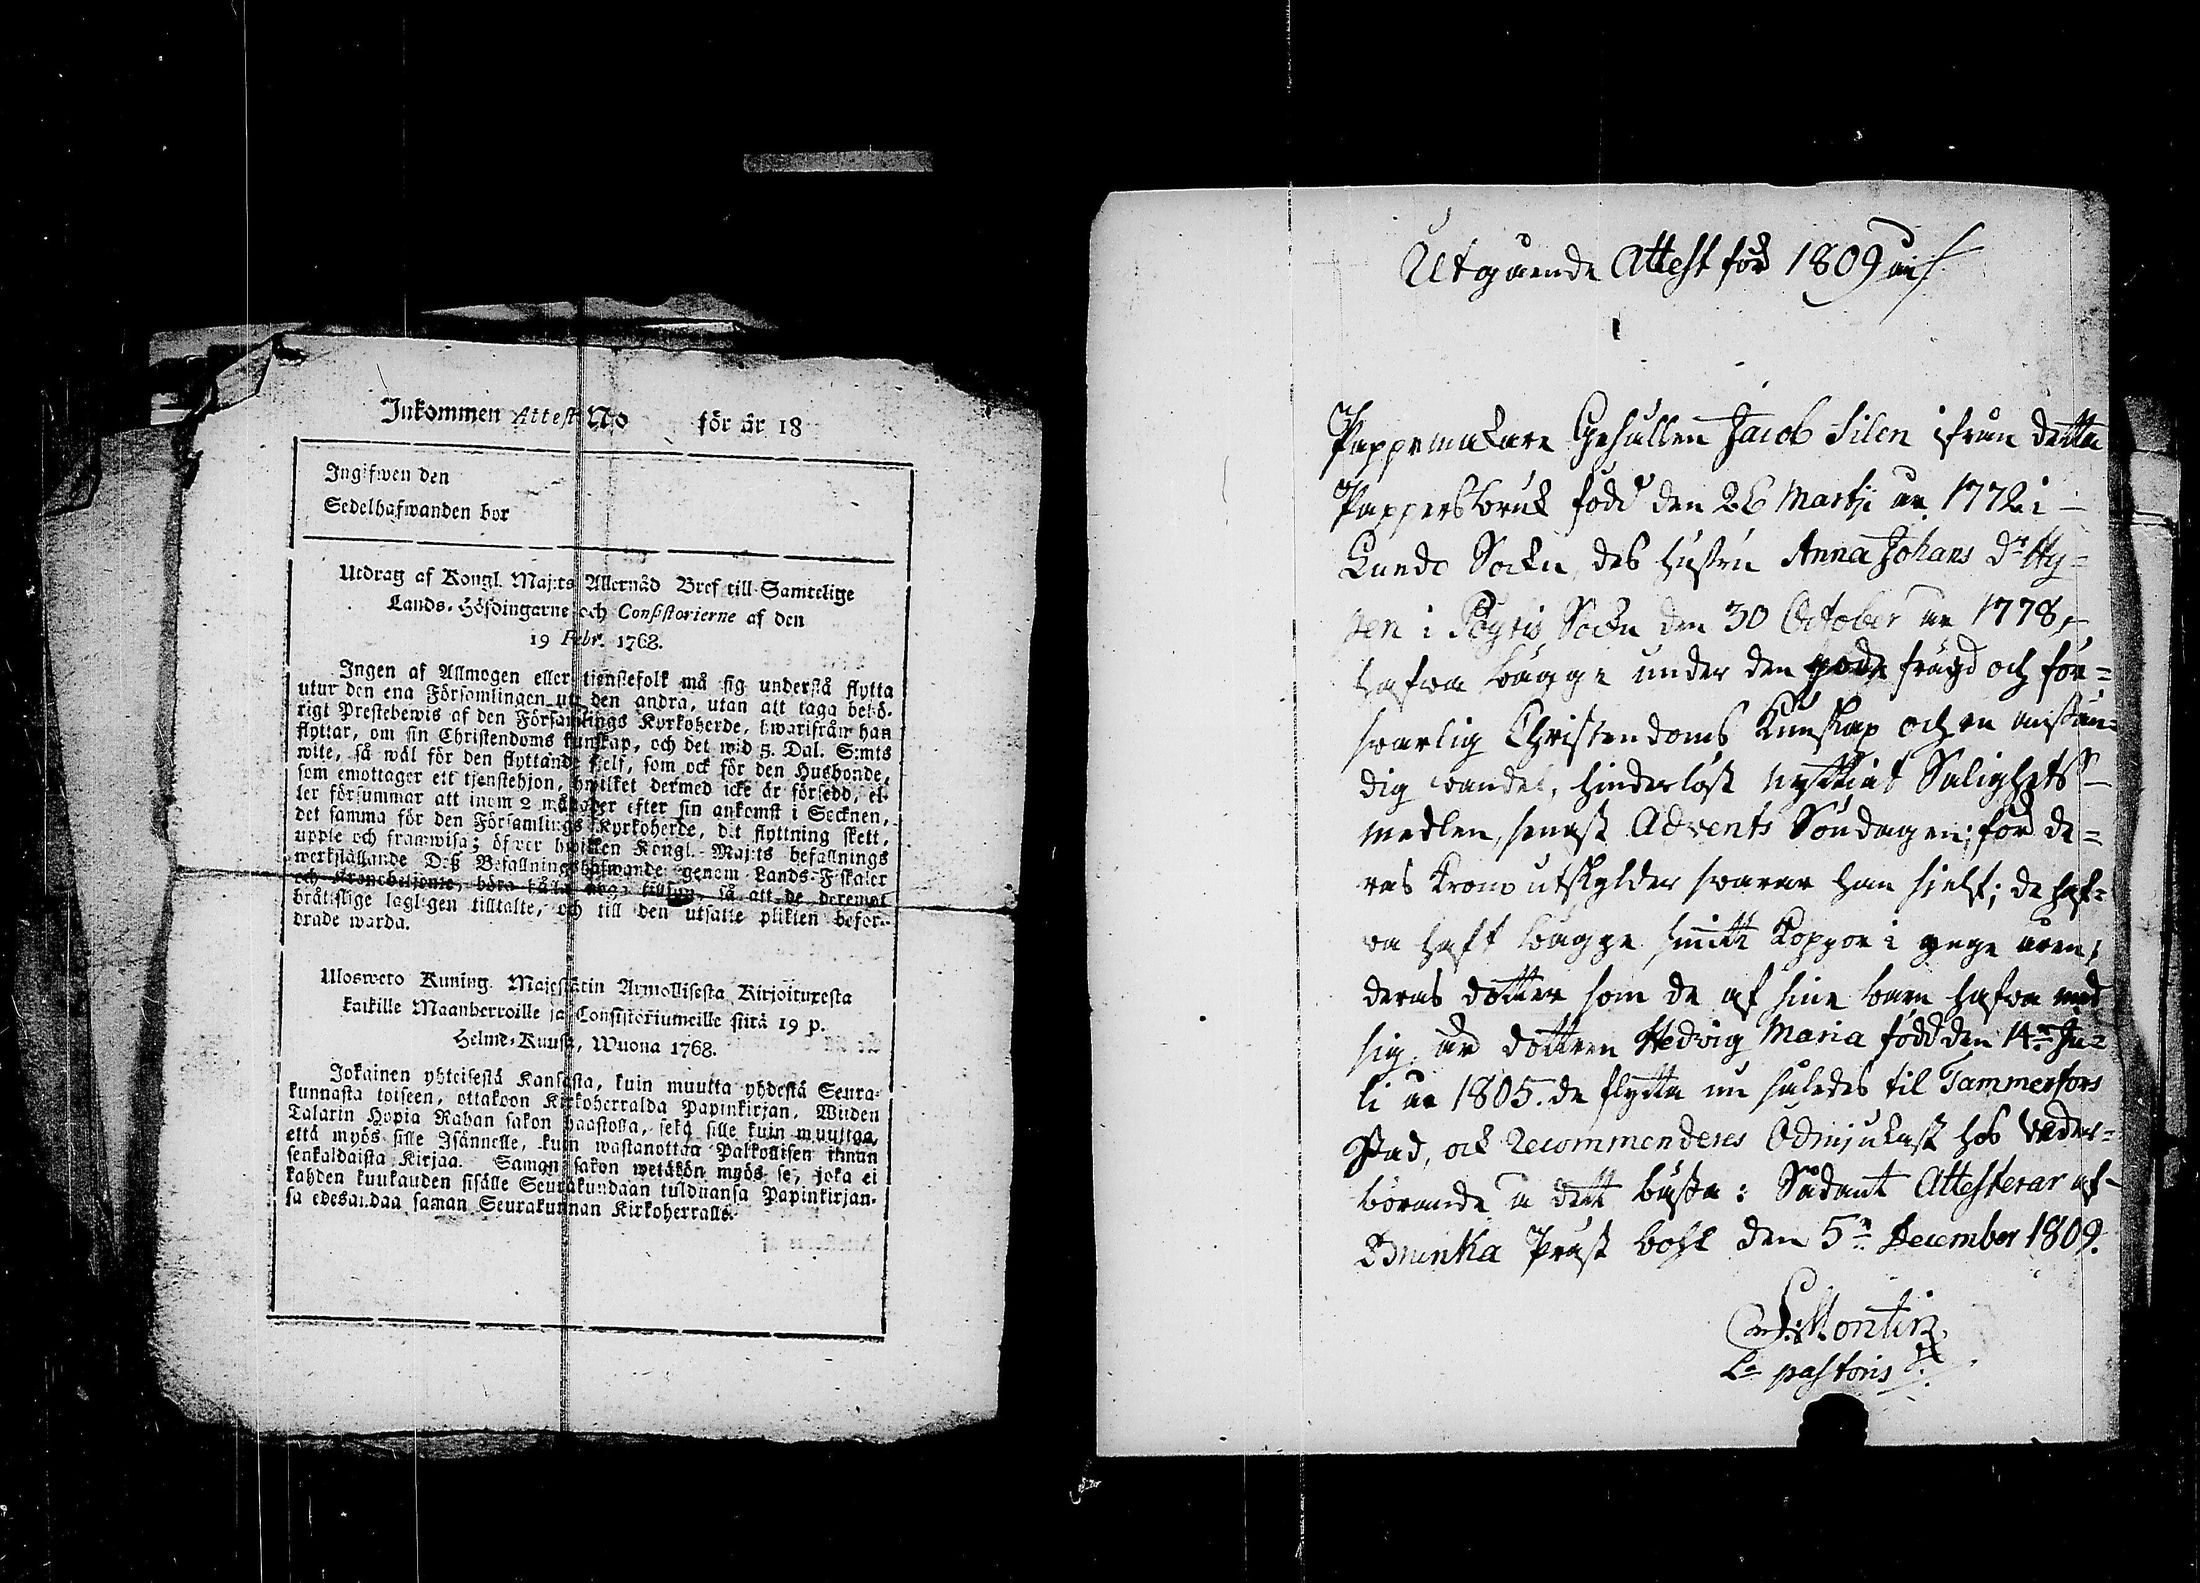 Inkommen Attest No för år 18
Ingifwen den
Sedelhafwanden bor
Utdrag af Kongl. Maj:ts Allernåd Bref till Samtelige
Lands-Höfdingarne och Consistorierne af den
19 Febr. 1768.
Ingen af Allmogen eller tienstefolk må sig understå flytta
utur den ena Församlingen uti den andra, utan att taga behö-
rigt Prestebewis af den Församlings Kyrkoherde, hwarifrån han
flyttar, om sin Christendoms kunskap, och det wid 5. Dal. S:mts
wite, så wäl för den flyttande sjelf, som ock för den Husbonde,
som emottager ett tjenstehjon, hwilket dermed icke är försedd, el-
ler försummar att inom 2 månader efter sin ankomst i Socknen,
det samma för den Församlings Kyrkoherde, dit flyttning skett,
uppte och framwisa; öfwer hwilken Kongl. Maj:ts befallnings
werkställande Deß Befallningshafwande genom Lands-Fiskaler
och Kronobetjente, böra hålla noga tillsyn, så att de deremot
bråttslige lagligen tilltalte, och till den utsatte plikten befor-
drade warda.
Uloswero Kuning. Majestetin Armollisesta Kirjoituxesta
kaikille Maanherroille ja Consistoriumeille siitä 19 p.
Helme-Kuusa, Wuona 1768.
Jokainen yhteisestä Kansasta, kuin muutta yhdestä Seura-
kunnasta toiseen, ottakoon Kirkoherralda Papinkirjan, Wiiden
Talarin Hopia Rahan sakon haastolla, sekä sille kuin muuttaa,
että myös sille Isännelle, kuin wastanottaa Palkollisen ilman
senkaldaista Kirjaa. Saman sakon wetäkön myös se, joka ei
kahden kuukauden sisälle Seurakundaan tulduansa Papinkirjan-
sa edesandaa saman Seurakunnan Kirkoherralle.
Utgående Attest för 1809
Pappermakare Gesällen Jacob Silen ifrån detta
Pappersbruk född den 26 Martji år 1772 i
Lundo Sockn, des Hustru Anna Johans dr
i Pöytis Sockn den 30 October år 1778,
hafva bägge under den gode frägd och för-
svarlig Christendoms Kunskap och en anstän-
dig vandel, hinderlöst nyttiat Salighets
medlen, senast Advents Söndagen; för de-
ras Krono utskylder svarar han sjelf; de haf-
va haft bägge smitt Koppor i yngre åren,
deras dotter som de af sine barn hafva med
sig, är dottren Hedvig Maria född den 14de Ju-
li år 1805. de flytta nu således til Tammerfors
Stad, och recommenderes Ödmjukast hos veder-
börande å dett bästa: Sådant Attesterar af
Brunkla Präst bohl den 5te December 1809.
Montin
Lo pastoris